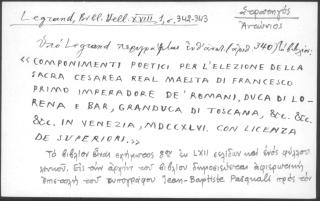 Legrand, Bibl. Hell. XVIII, 1, σ. 342-343
Στρατηγός
Ἀντώνιος
Ὑπὸ Legrand περιγράφεται ἐνθ' ἀνωτ. (ἀριθ. 340) βιβλίον:
«COMPONIMENTI POETICI PER L'ELEZIONE DELLA
SACRA CESAREA REAL MAESTA DI FRANCESCO
PRIMO IMPERADORE DE' ROMANI, DUCA DI LO-
RENA E BAR, GRANDUCA DI TOSCANA, &c. &c.
&c. IN VENEZIA, MDCCXLVI. CON LICENZA
DE SUPERIORI.»
Τὸ βιβλίον εἶναι σχήματος 8ον ἐκ LXII σελίδων καὶ ἑνὸς φύλλου
λευκοῦ. Εἰς τὴν ἀρχὴν τοῦ βιβλίου δημοσιεύεται ἀφιερωτικὴ
ἐπιστολὴ τοῦ τυπογράφου Jean-Baptiste Pasquali πρὸς τὸν